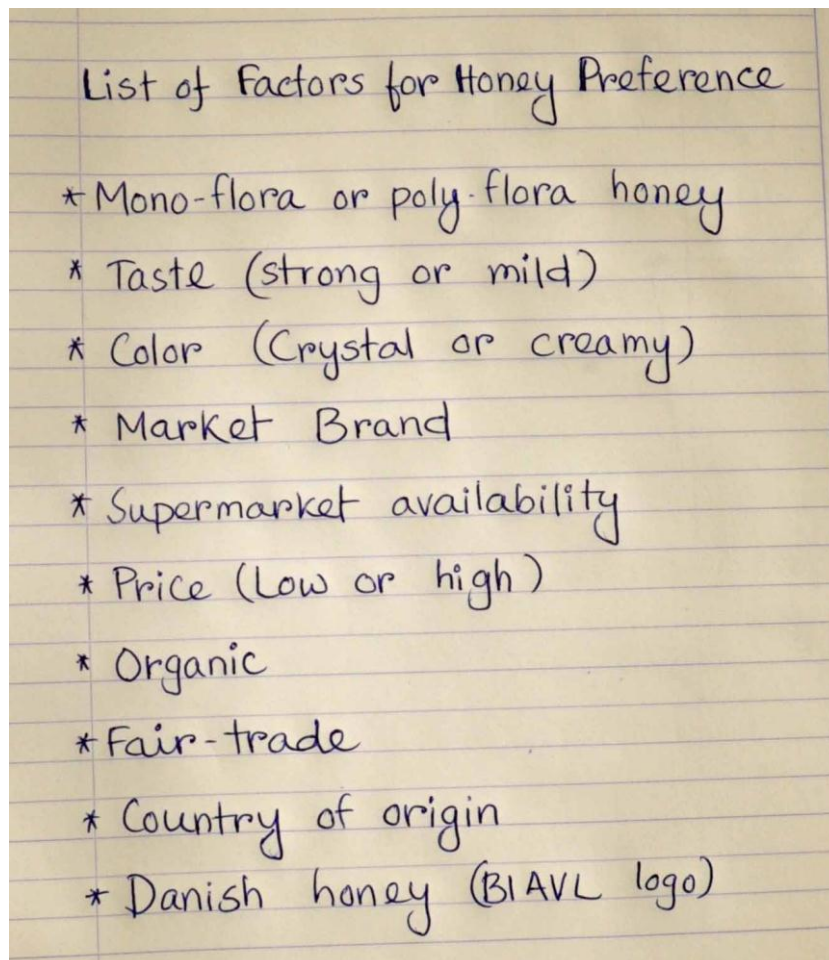 List of Factors for Honey Preference
* Mono-flora or poly-flora honey
* Taste (strong or mild)
* Color (Crystal or creamy)
* Market Brand
* Supermarket availability
* Price (Low or high)
* Organic
* Fair-trade
* Country of origin
* Danish honey (BIAVL logo)